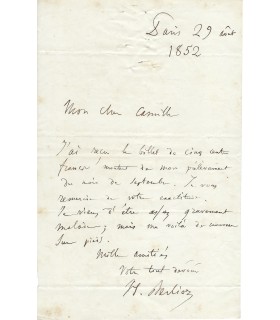 Paris 29 août
1852
Mon cher Camille
J'ai reçu le billet de cinq cents
francs montant de mon paiement
du mois de Septembre. Je vous
remercie de votre exactitude.
Je viens d'être assez gravement
malade, mais me voilà de nouveau
sur pied.
Mille amitiés
Votre tout dévoué
H. Berlioz